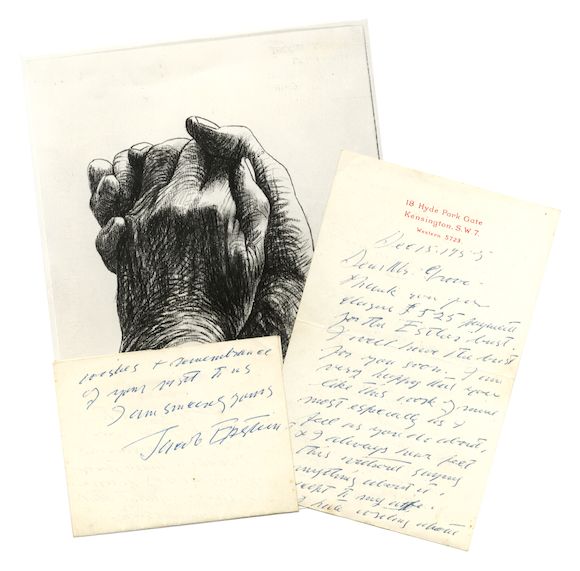 18 Hyde Park Gate
Kensington, S.W.7.
Western 5723
Dec 15 1955
Dear Mr. Grove
Thank you for
cheque $525 payment
for the Esther bust.
I will have the bust
for you soon. I am
very happy that you
like this work of mine
most especially as I
feel as you do about,
& I always have felt
this without saying
anything about it,
except to my wife.
I hate writing about
wishes & remembrance
of your visit to us
I am sincerely yours
Jacob Epstein